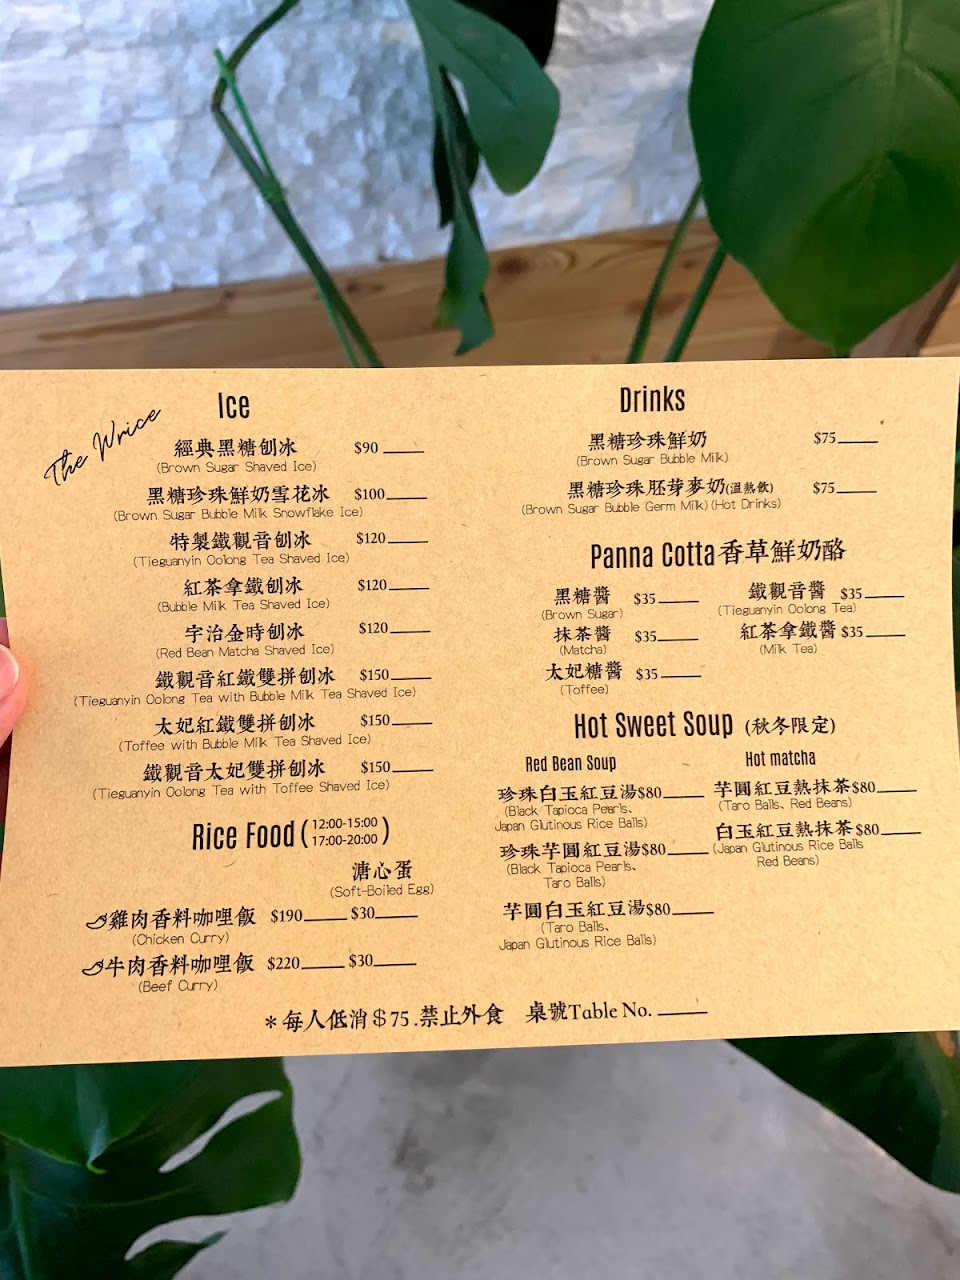 The Wrice
Ice
經典黑糖刨冰 $90
(Brown Sugar Shaved Ice)
黑糖珍珠鮮奶雪花冰 $100
(Brown Sugar Bubble Milk Snowflake Ice)
特製鐵觀音刨冰 $120
(Tieguanyin Oolong Tea Shaved Ice)
紅茶拿鐵刨冰 $120
(Bubble Milk Tea Shaved Ice)
宇治金時刨冰 $120
(Red Bean Matcha Shaved Ice)
鐵觀音紅鐵雙拼刨冰 $150
(Tieguanyin Oolong Tea with Bubble Milk Tea Shaved Ice)
太妃紅鐵雙拼刨冰 $150
(Toffee with Bubble Milk Tea Shaved Ice)
鐵觀音太妃雙拼刨冰 $150
(Tieguanyin Oolong Tea with Toffee Shaved Ice)
Rice Food (12:00-15:00
17:00-20:00)
溏心蛋
(Soft-Boiled Egg)
雞肉香料咖哩飯 $190 $30
(Chicken Curry)
牛肉香料咖哩飯 $220 $30
(Beef Curry)
Drinks
黑糖珍珠鮮奶 $75
(Brown Sugar Bubble Milk)
黑糖珍珠胚芽麥奶(溫熱飲) $75
(Brown Sugar Bubble Germ Milk)(Hot Drinks)
Panna Cotta 香草鮮奶酪
黑糖醬 $35 鐵觀音醬 $35
(Brown Sugar) (Tieguanyin Oolong Tea)
抹茶醬 $35 紅茶拿鐵醬 $35
(Matcha) (Milk Tea)
太妃糖醬 $35
(Toffee)
Hot Sweet Soup (秋冬限定)
Red Bean Soup
珍珠白玉紅豆湯$80
(Black Tapioca Pearls、
Japan Glutinous Rice Balls)
珍珠芋圓紅豆湯$80
(Black Tapioca Pearls、
Taro Balls)
芋圓白玉紅豆湯$80
(Taro Balls、
Japan Glutinous Rice Balls)
Hot matcha
芋圓紅豆熱抹茶$80
(Taro Balls、Red Beans)
白玉紅豆熱抹茶$80
(Japan Glutinous Rice Balls
Red Beans)
＊每人低消$75.禁止外食 桌號Table No.